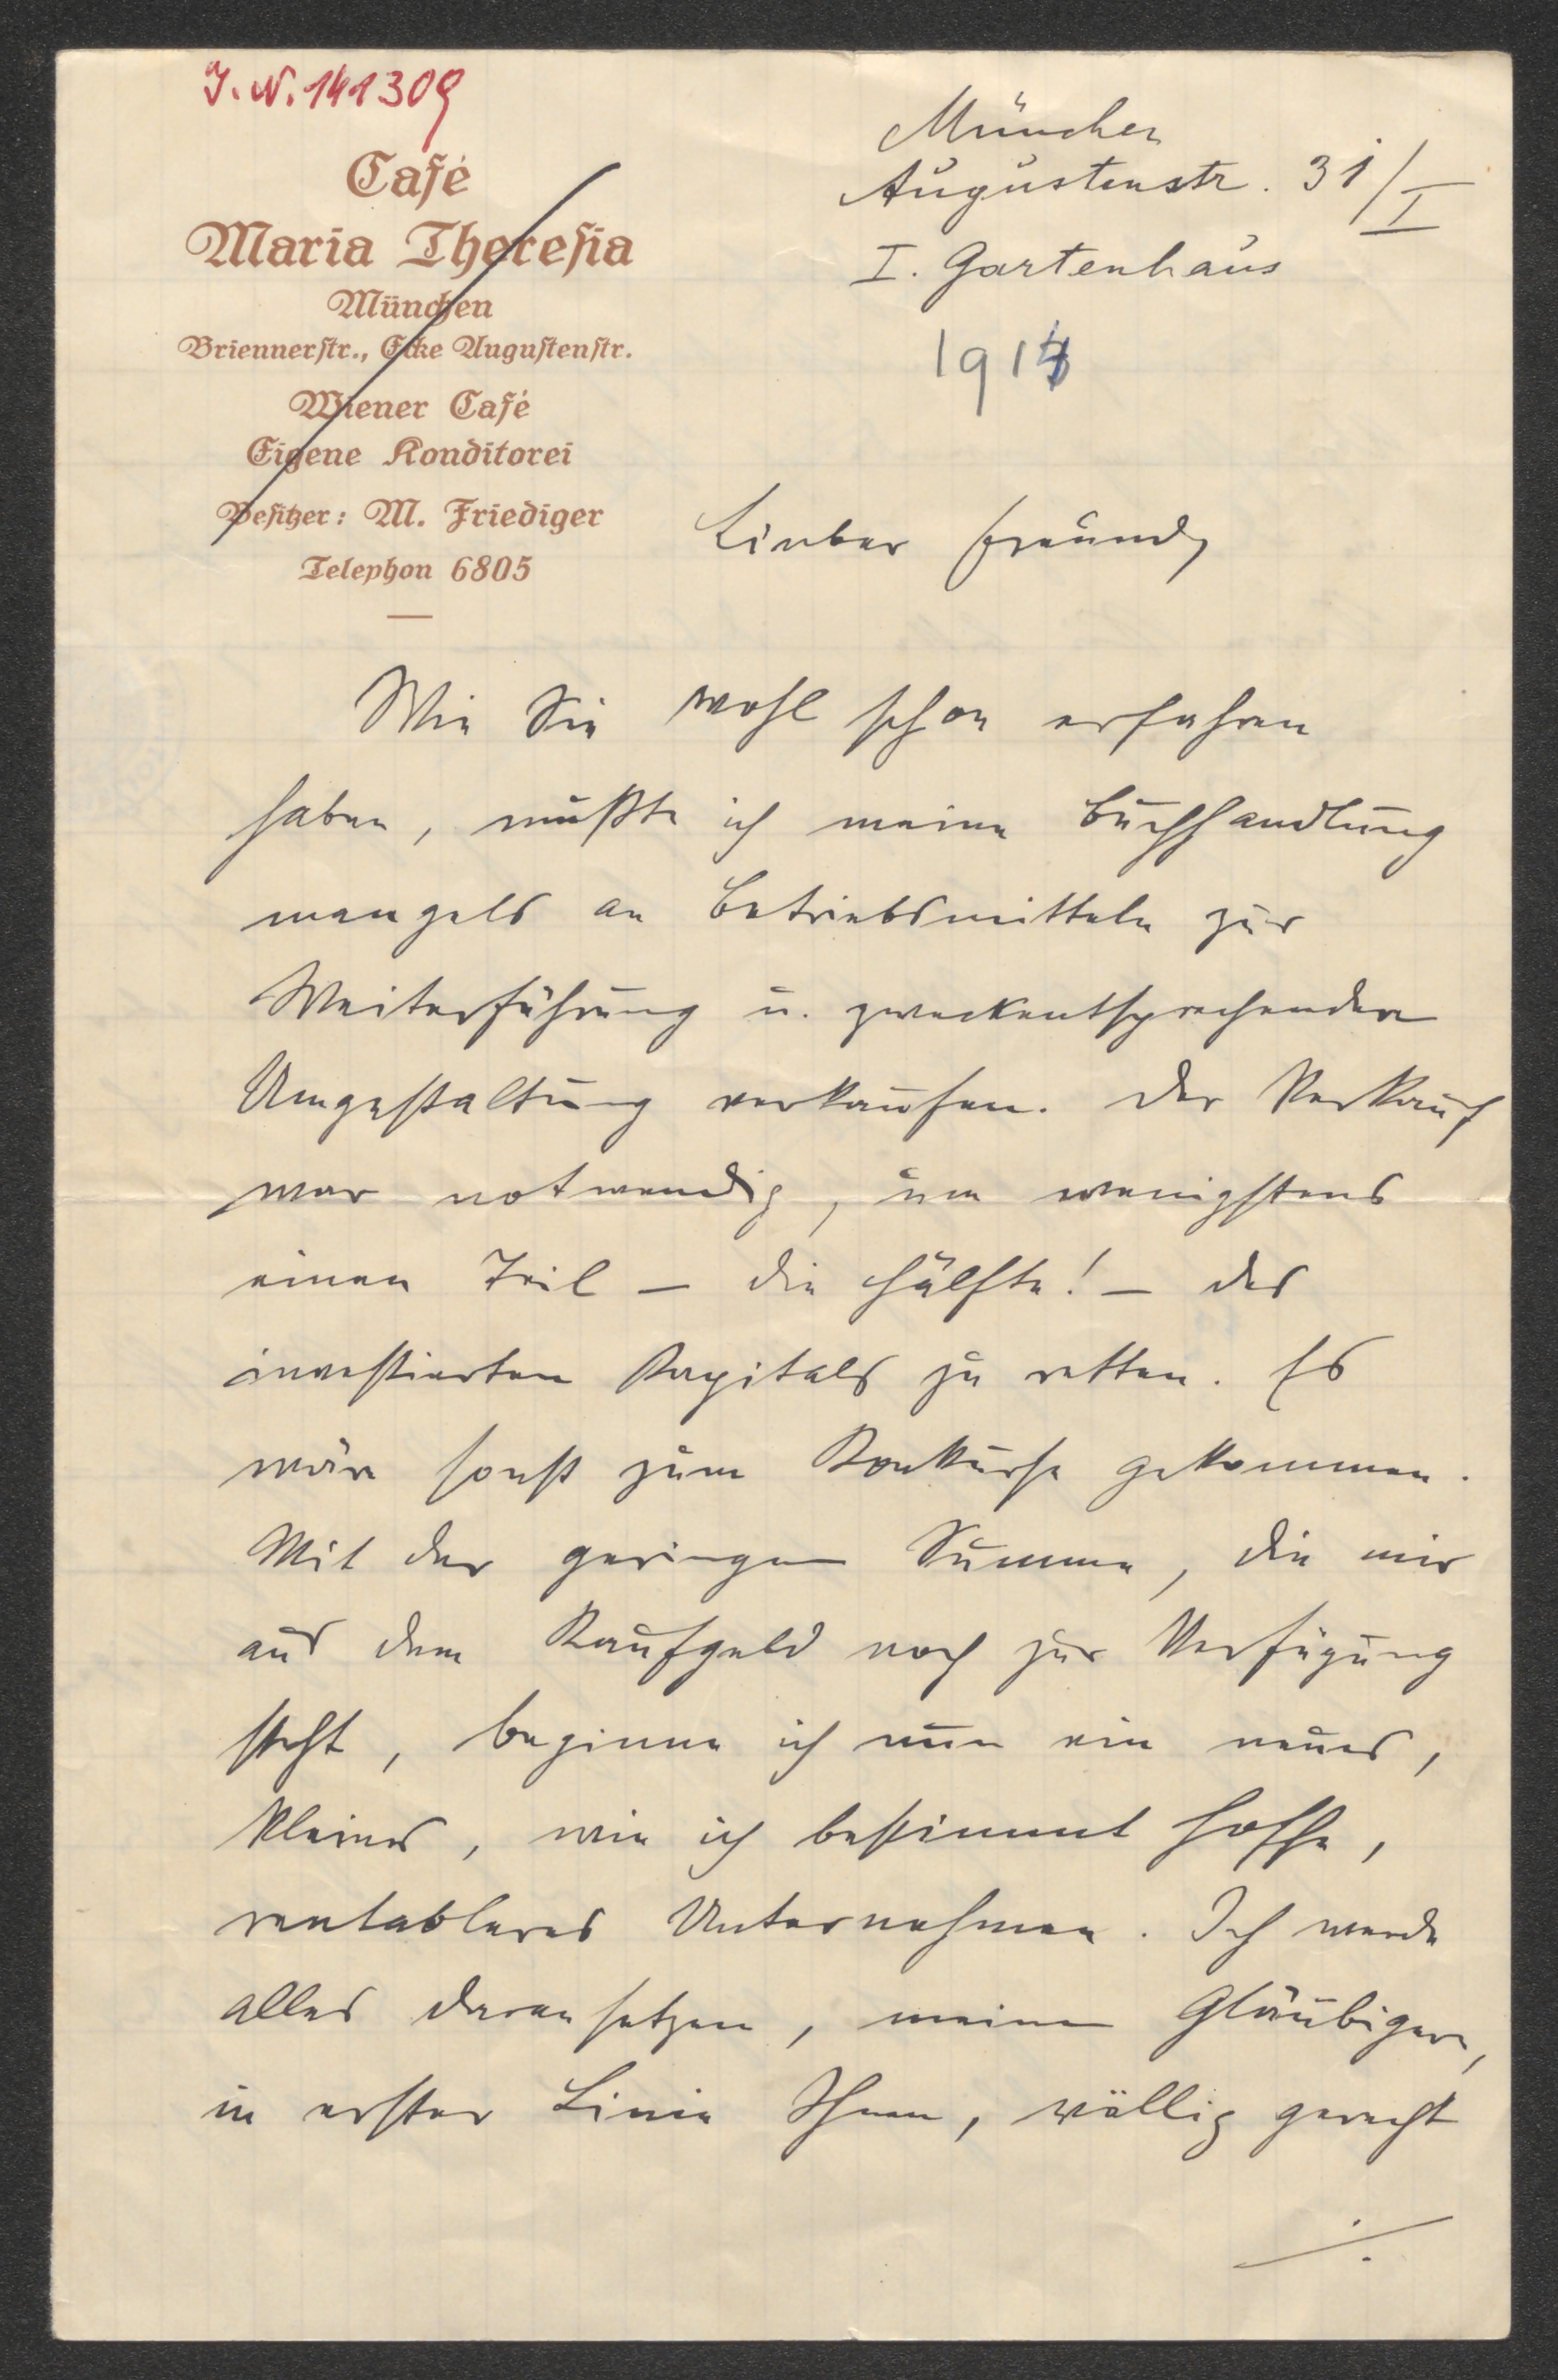 J. N. 141309
Café
Maria Theresia
München
Briennerstr., Ecke Augustenstr.
Wiener Café
Eigene Konditorei
Besitzer: M. Friediger
Telephon 6805
München
Augustenstr. 31/I
I. Gartenhaus
191
Lieber Freund,
Wie Sie wohl schon erfahren
haben, mußte ich meine Buchhandlung
mangels an Betriebsmitteln zur
Weiterführung u. zweckentsprechenden
Umgestaltung verkaufen. Der Verkauf
war notwendig, um wenigstens
einen Teil – die Hälfte! – des
investierten Kapitals zu retten. Es
wäre sonst zum Konkurse gekommen.
Mit der geringen Summe, die mir
aus dem Kaufgeld noch zur Verfügung
steht, beginne ich nun ein neues,
kleines, wie ich bestimmt hoffe,
rentableres Unternehmen. Ich werde
alles daransetzen, meinen Gläubigern,
in erster Linie Ihnen, völlig gerecht
./.